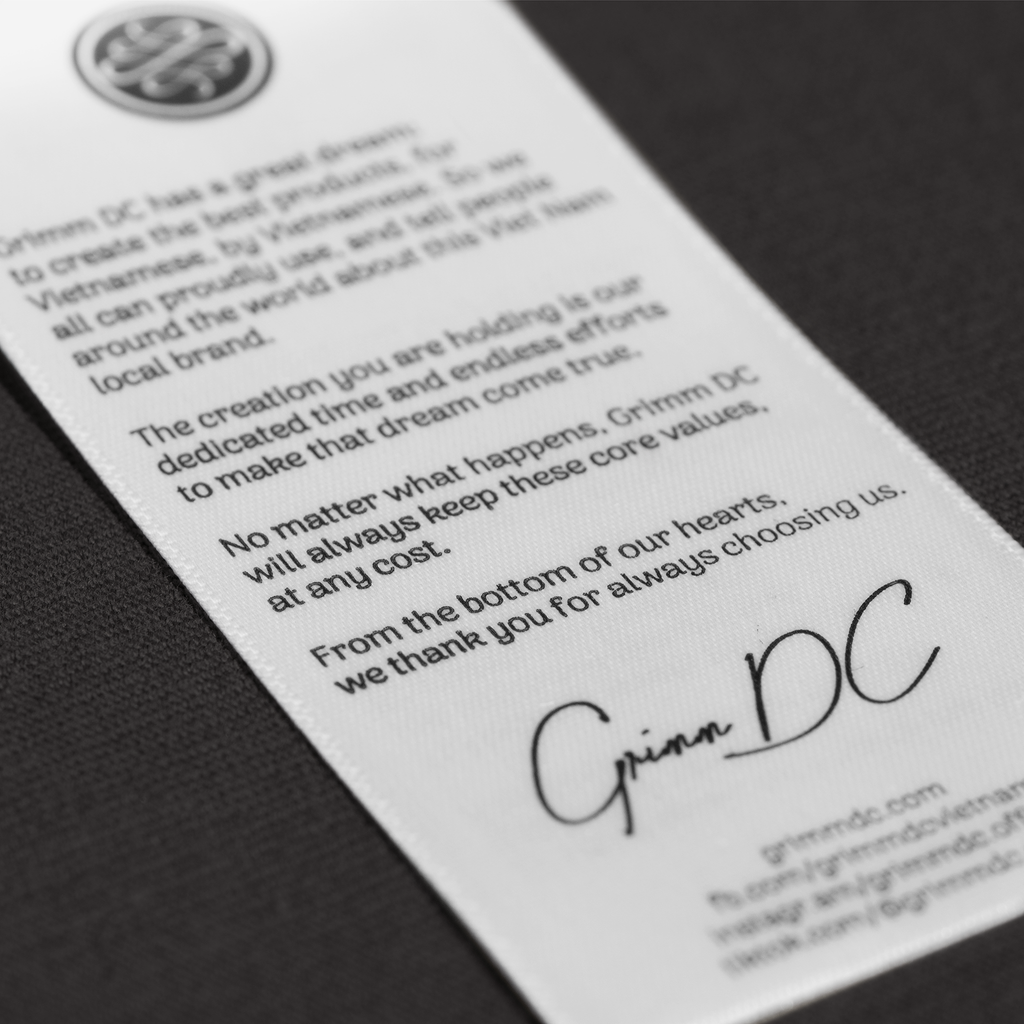 Grimm DC has a great dream:
to create the best products, for
Vietnamese, by Vietnamese. So we
all can proudly use, and tell people
around the world about this Viet Nam
local brand.
The creation you are holding is our
dedicated time and endless efforts
to make that dream come true.
No matter what happens, Grimm DC
will always keep these core values,
at any cost.
From the bottom of our hearts,
we thank you for always choosing us.
Grimm DC
grimmdc.com
fb.com/grimmdcvietnam
instagr.am/grimmdc.off
tiktok.com/@grimmdc.